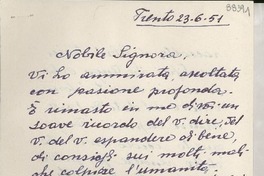 Trento 23.6.51
Nobile Signora,
Vi ho ammirata, ascoltata
con passione profonda.
È rimasto in me di voi un
soave ricordo del v. dire, del
v. del v. espandere di bene,
di consigli sui molti mali
che colpire l'umanità.